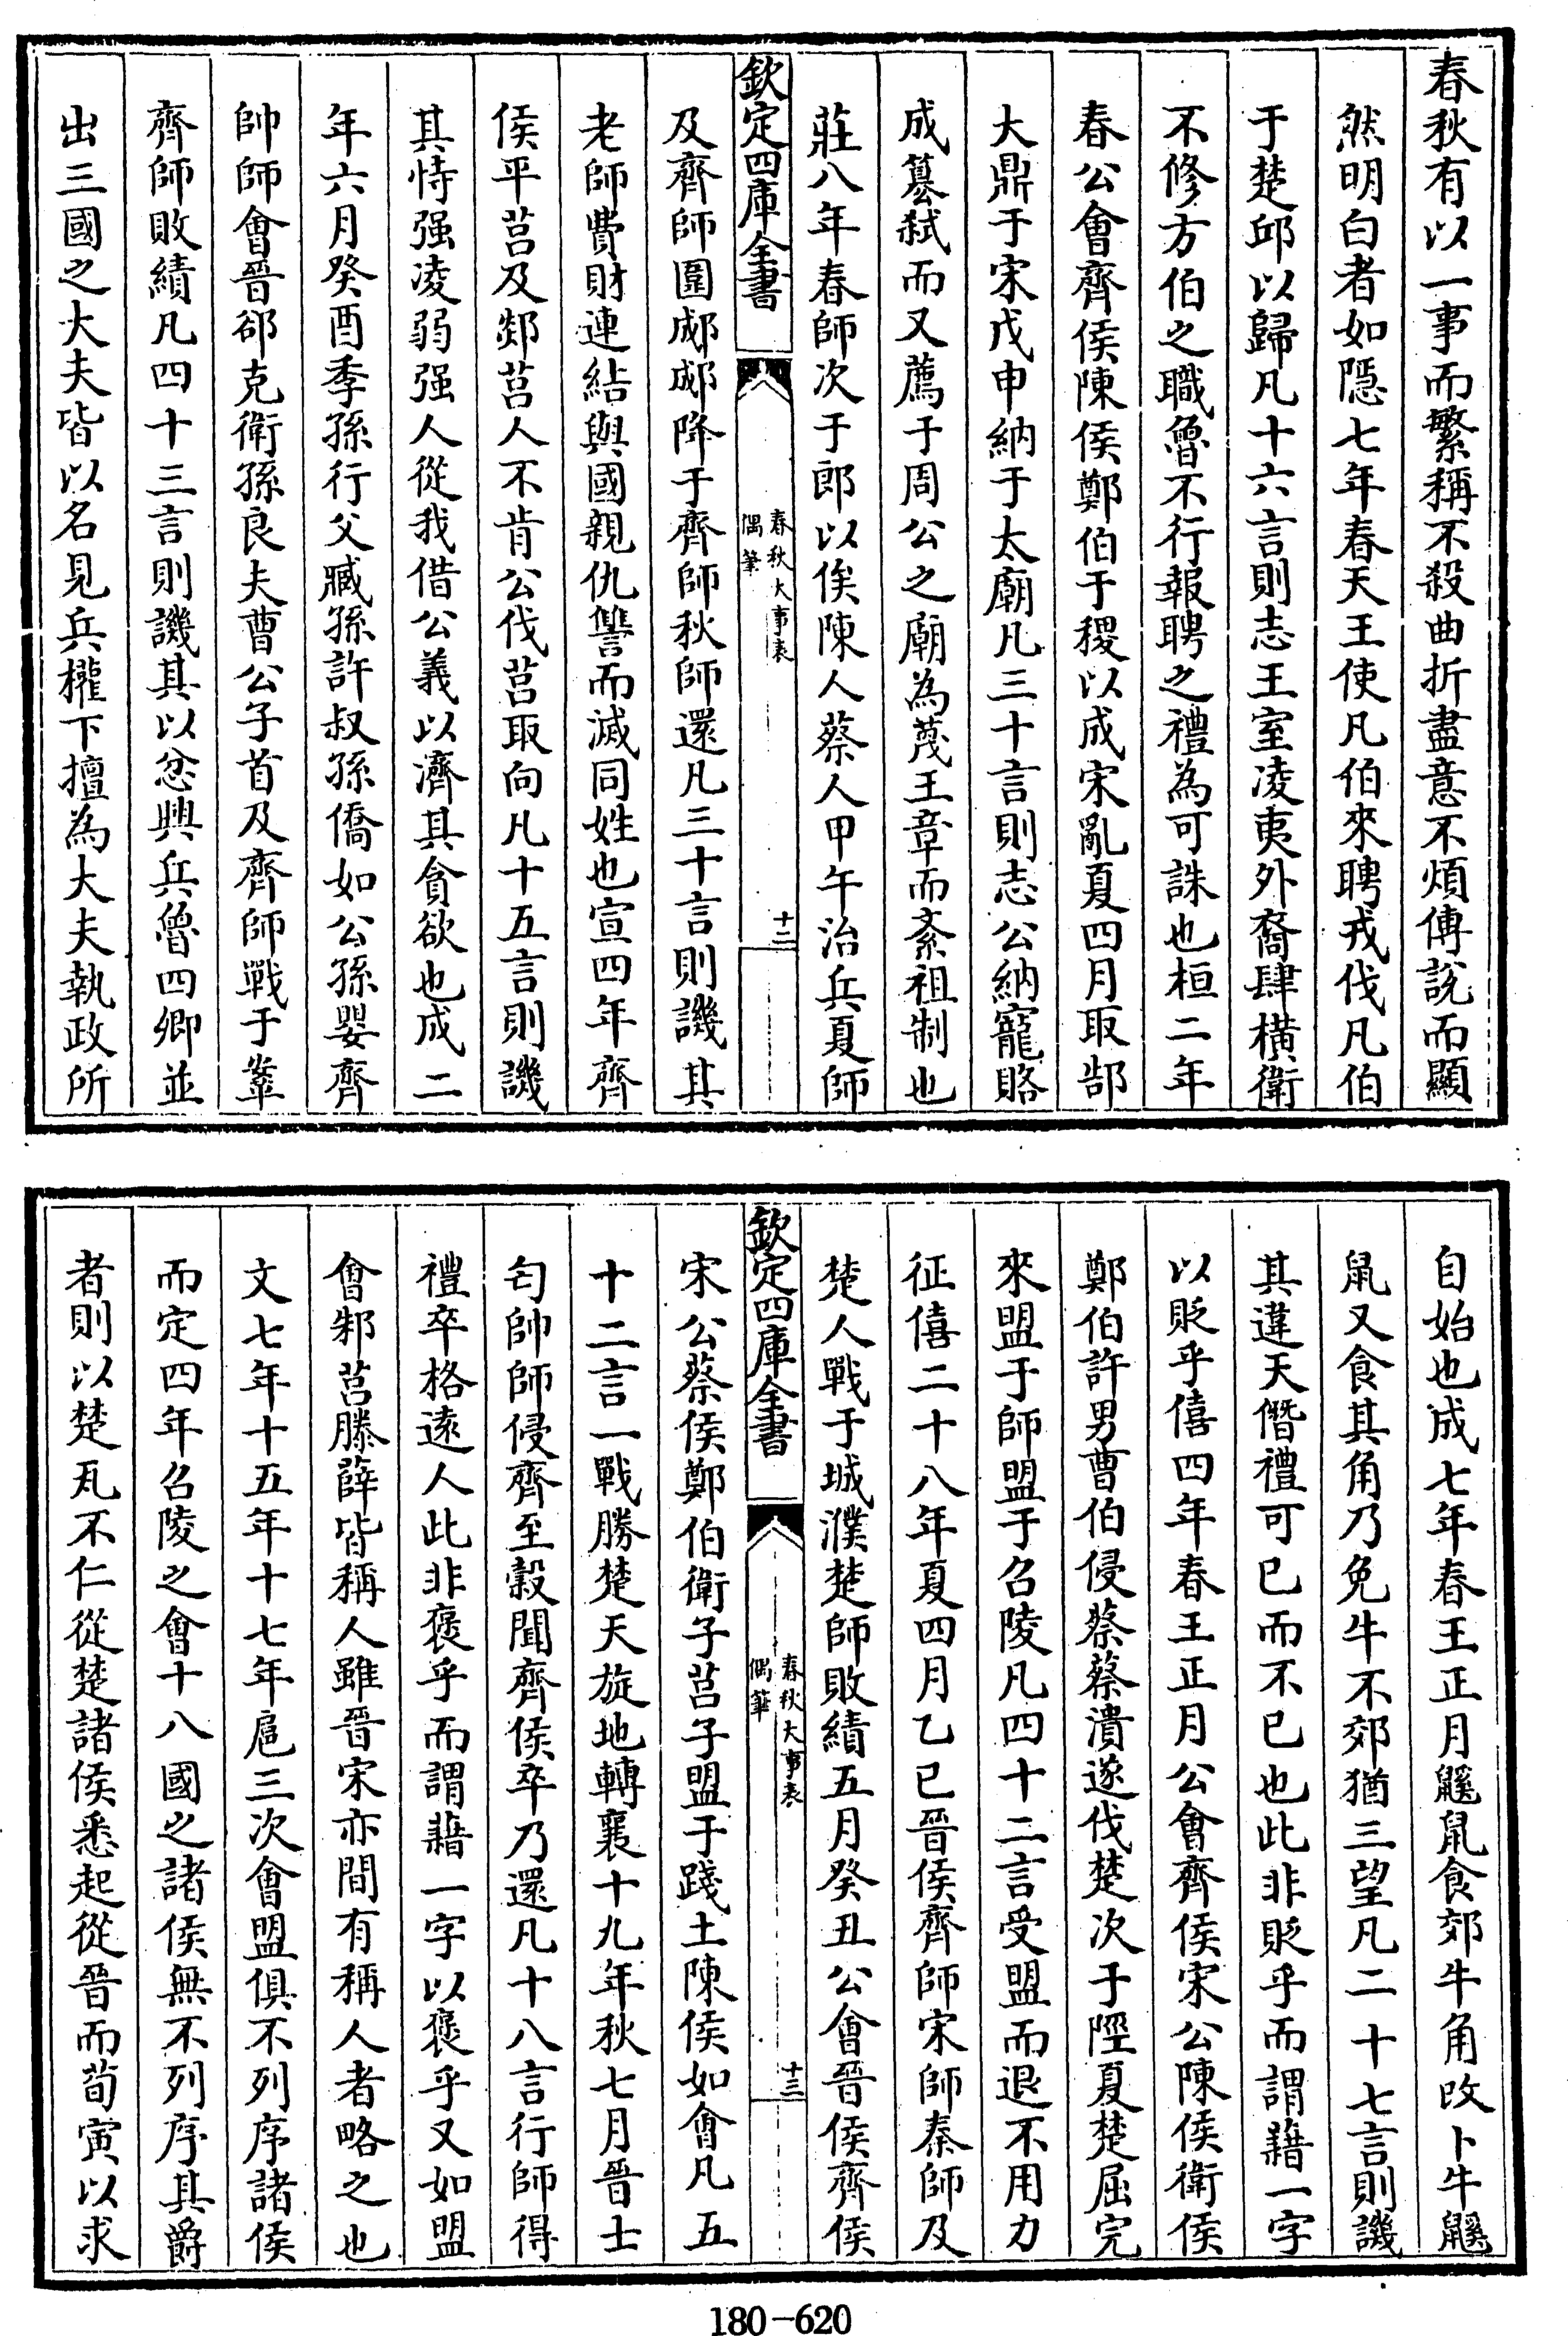 春秋有以一事而繁稱不殺曲折盡意不煩傳說而顯
然明白者如隱七年春天王使凡伯來聘戎伐凡伯
于楚邱以歸凡十六言則志王室凌夷外裔肆橫衛
不修方伯之職魯不行報聘之禮為可誅也桓二年
春公會齊侯陳侯鄭伯于稷以成宋亂夏四月取郜
大鼎于宋戊申納于太廟凡三十言則志公納寵賂
成篡弑而又薦于周公之廟為蔑王章而紊祖制也
莊八年春師次于郎以俟陳人蔡人甲午治兵夏師
欽定四庫全書
春秋大事表
偶筆
十二
及齊師圍郕郕降于齊師秋師還凡三十言則譏其
老師費財連結與國親仇讐而滅同姓也宣四年齊
侯平莒及郯莒人不肯公伐莒取向凡十五言則譏
其恃强凌弱强人從我借公義以濟其貪欲也成二
年六月癸酉季孫行父臧孫許叔孫僑如公孫嬰齊
帥師會晉郤克衛孫良夫曹公子首及齊師戰于鞌
齊師敗績凡四十三言則譏其以忿興兵魯四卿並
出三國之大夫皆以名見兵權下擅為大夫執政所
自始也成七年春王正月鼷鼠食郊牛角改卜牛鼷
鼠又食其角乃免牛不郊猶三望凡二十七言則譏
其違天僭禮可已而不已也此非貶乎而謂藉一字
以貶乎僖四年春王正月公會齊侯宋公陳侯衛侯
鄭伯許男曹伯侵蔡蔡潰遂伐楚次于陘夏楚屈完
來盟于師盟于召陵凡四十二言受盟而退不用力
征僖二十八年夏四月乙巳晉侯齊師宋師秦師及
楚人戰于城濮楚師敗績五月癸丑公會晉侯齊侯
欽定四庫全書
春秋大事表
偶筆
十三
宋公蔡侯鄭伯衛子莒子盟于踐土陳侯如會凡五
十二言一戰勝楚天旋地轉襄十九年秋七月晉士
匄帥師侵齊至穀聞齊侯卒乃還凡十八言行師得
禮卒格遠人此非褒乎而謂藉一字以褒乎又如盟
會邾莒滕薛皆稱人雖晉宋亦間有稱人者略之也
文七年十五年十七年扈三次會盟俱不列序諸侯
而定四年召陵之會十八國之諸侯無不列序其爵
者則以楚瓦不仁從楚諸侯悉起從晉而荀寅以求
180-620